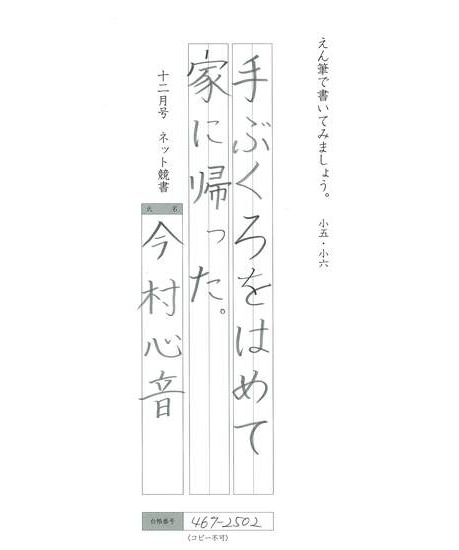 えん筆で書いてみましょう。 小五・小六
手ぶくろをはめて
家に帰った。
十二月号 ネット競書
氏名
今村心音
合格番号 467-2502
〈コピー不可〉